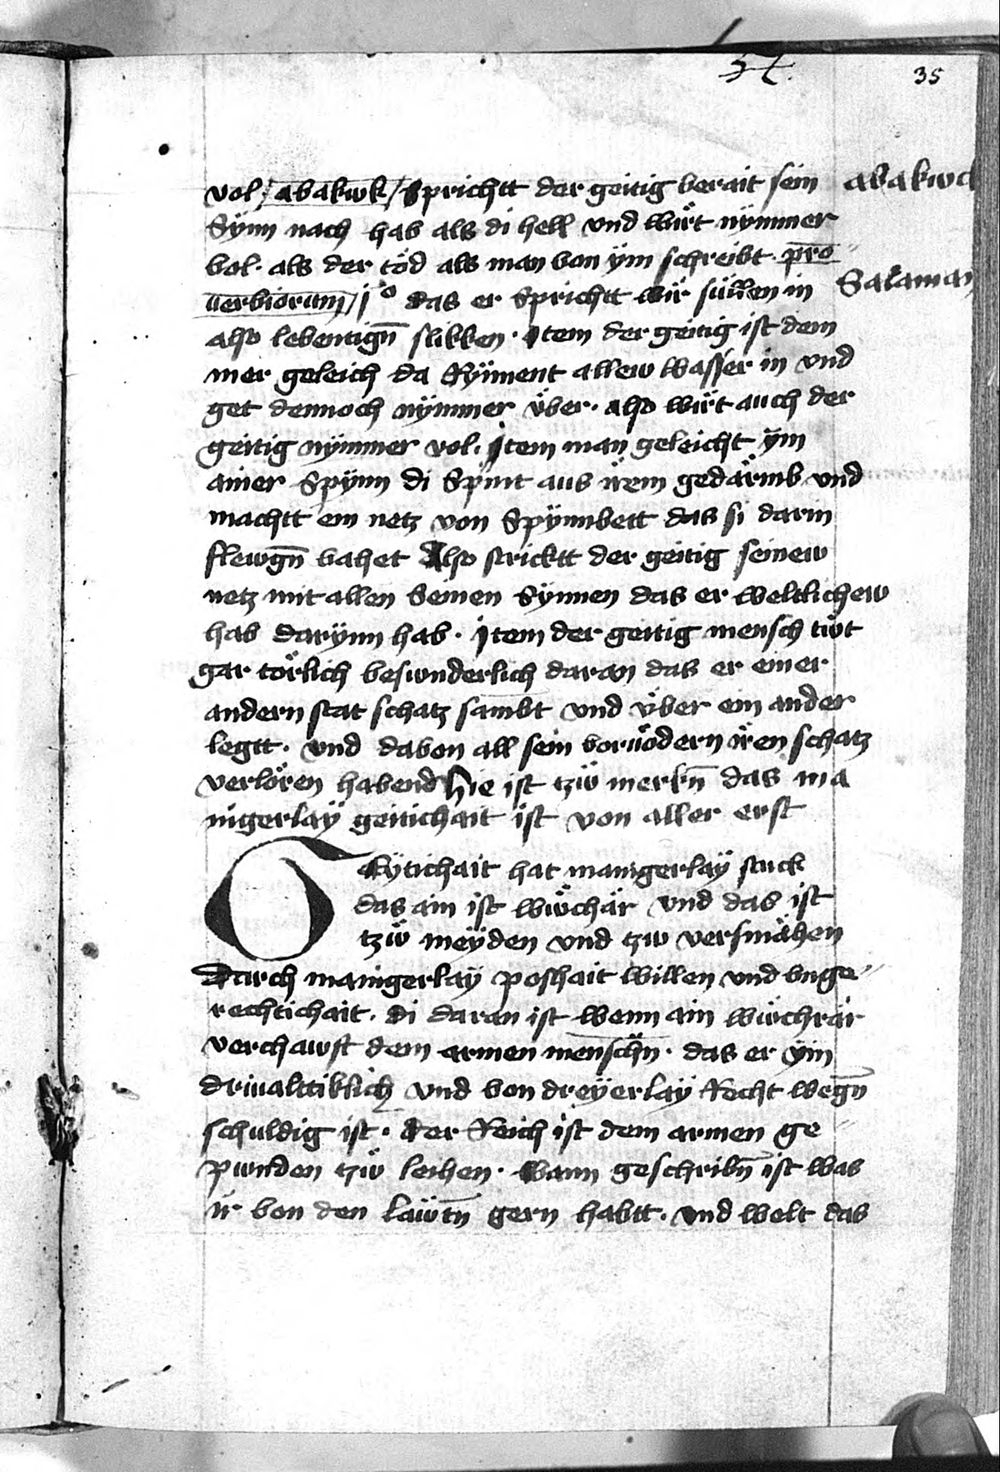 34.
35
vol / abakwk / Sprichtt der geitig berait sein
abakwck
Synn nach hab als di hell vnd wirt nÿmmer
vol. als der töd als man von ÿm schreibt. pro„
uerbiorum / j° das er Sprichtt wir süllen in
Salaman
also lebentign̄ slikken. Item der geitig ist dem
mer geleich da Rÿnnent allew wasser in vnd
get dennoch nÿmmer über. also wirt auch der
geitig nÿmmer vol. Item man geleicht ÿm
ainer Spÿnn di Spint aus irem gedärmb vnd
machtt ein netz von Spÿnnbett das si darin
flewgn̄ vahet Also stricktt der geitig seinew
netz mit allen Seinen Sÿnnen das er weltlichew
hab darÿnn hab. Item der geitig mensch tüt
gar törlich besunderlich daran das er einer
andern stat schatz sambt vnd über ein ander
legtt. vnd davon all sein voruodern iren schatz
verlören habend Hie ist tzü merkn̄ das ma
nigerlaÿ geitichait ist von aller erst
Gÿtichait hat manigerlaÿ stuck
das ain ist wüchär vnd das ist
tzü meÿden vnd tzw versmähen
Durch manigerlaÿ poshait willen vnd vnge„
rechtichait. di daran ist wenn ain wüchrär
verchawst dem armen menschn̄. das er ÿm
driualttiklich vnd von dreÿerlaÿ Recht wegn̄
schuldig ist. der Reich ist dem armen ge„
punden tzü leihen. Wann geschribn̄ ist was
ir von den läwtn̄ gern habtt. vnd welt das